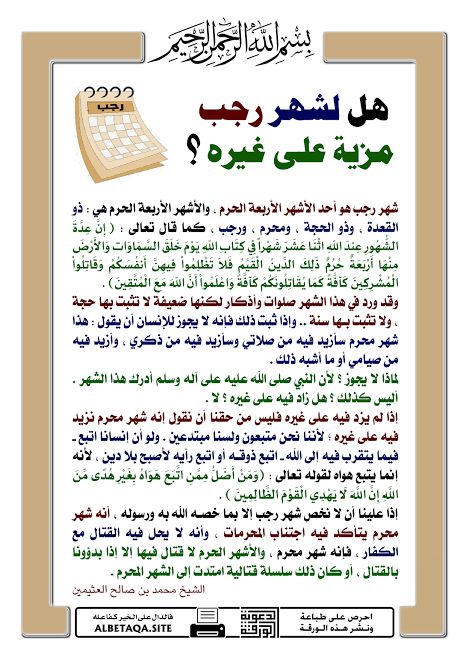 بِسْمِ اللَّهِ الرَّحْمَنِ الرَّحِيمِ
رجب
هل لشهر رجب
مزية على غيره ؟
شهر رجب هو أحد الأشهر الأربعة الحرم ، والأشهر الأربعة الحرم هي : ذو
القعدة ، وذو الحجة ، ومحرم ، ورجب ، كما قال تعالى : ( إِنَّ عِدَّةَ
الشُّهُورِ عِندَ اللهِ اثْنَا عَشَرَ شَهْراً فِي كِتَابِ اللهِ يَوْمَ خَلَقَ السَّمَاوَات وَالأَرْضَ
مِنْهَا أَرْبَعَةٌ حُرُمٌ ذَلِكَ الدِّينُ الْقَيِّمُ فَلاَ تَظْلِمُواْ فِيهِنَّ أَنفُسَكُمْ وَقَاتِلُواْ
الْمُشْرِكِينَ كَآفَّةً كَمَا يُقَاتِلُونَكُمْ كَآفَّةً وَاعْلَمُواْ أَنَّ اللهَ مَعَ الْمُتَّقِينَ) .
وقد ورد في هذا الشهر صلوات وأذكار لكنها ضعيفة لا تثبت بها حجة
، ولا تثبت بـها سنة .. وإذا ثبت ذلك فإنه لا يجوز للإنسان أن يقول : هذا
شهر محرم سأزيد فيه من صلاتي وسأزيد فيه من ذكري ، وأزيد فيه
من صيامي أو ما أشبه ذلك .
لماذا لا يجوز ؟ لأن النبي صلى الله عليه على آله وسلم أدرك هذا الشهر .
أليس كذلك ؟ هل زاد فيه على غيره ؟ لا .
إذا لم يزد فيه على غيره فليس من حقنا أن نقول إنه شهر محرم نزيد
فيه على غيره ؛ لأننا نحن متبعون ولسنا مبتدعين . ولو أن إنسانا اتبع ـ
فيما يتقرب فيه إلى الله ـ اتبع ذوقـه أو اتبع رأيه لأصبح بلا دين ، لأنه
إنما يتبع هواه لقوله تعالى : (وَمَنْ أَضَلُّ مِمَّنِ اتَّبَعَ هَوَاهُ بِغَيْرِ هُدًى مِّنَ
اللَّهِ إِنَّ اللَّهَ لَا يَهْدِي الْقَوْمَ الظَّالِمِينَ ) .
إذا علينا أن لا نخص شهر رجب إلا بما خصـه الله به ورسوله ، أنه شهر
محرم يتأكد فيه اجتناب المحرمات ، وأنه لا يحل فيه القتال مع
الكفار ، فإنه شهر محرم ، والأشهر الحرم لا قتال فيها إلا إذا بدؤونا
بالقتال ، أو كان ذلك سلسلة قتالية امتدت إلى الشهر المحرم .
الشيخ محمد بن صالح العثيمين
احرص على طباعة
ونشر هذه الورقة
فالدال على الخير كفاعله
ALBETAQA.SITE